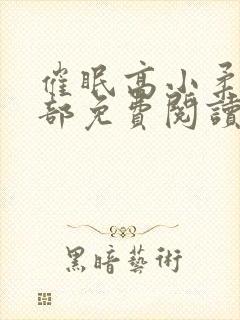 催眠高小柔
部免費閱讀
黑暗藝術